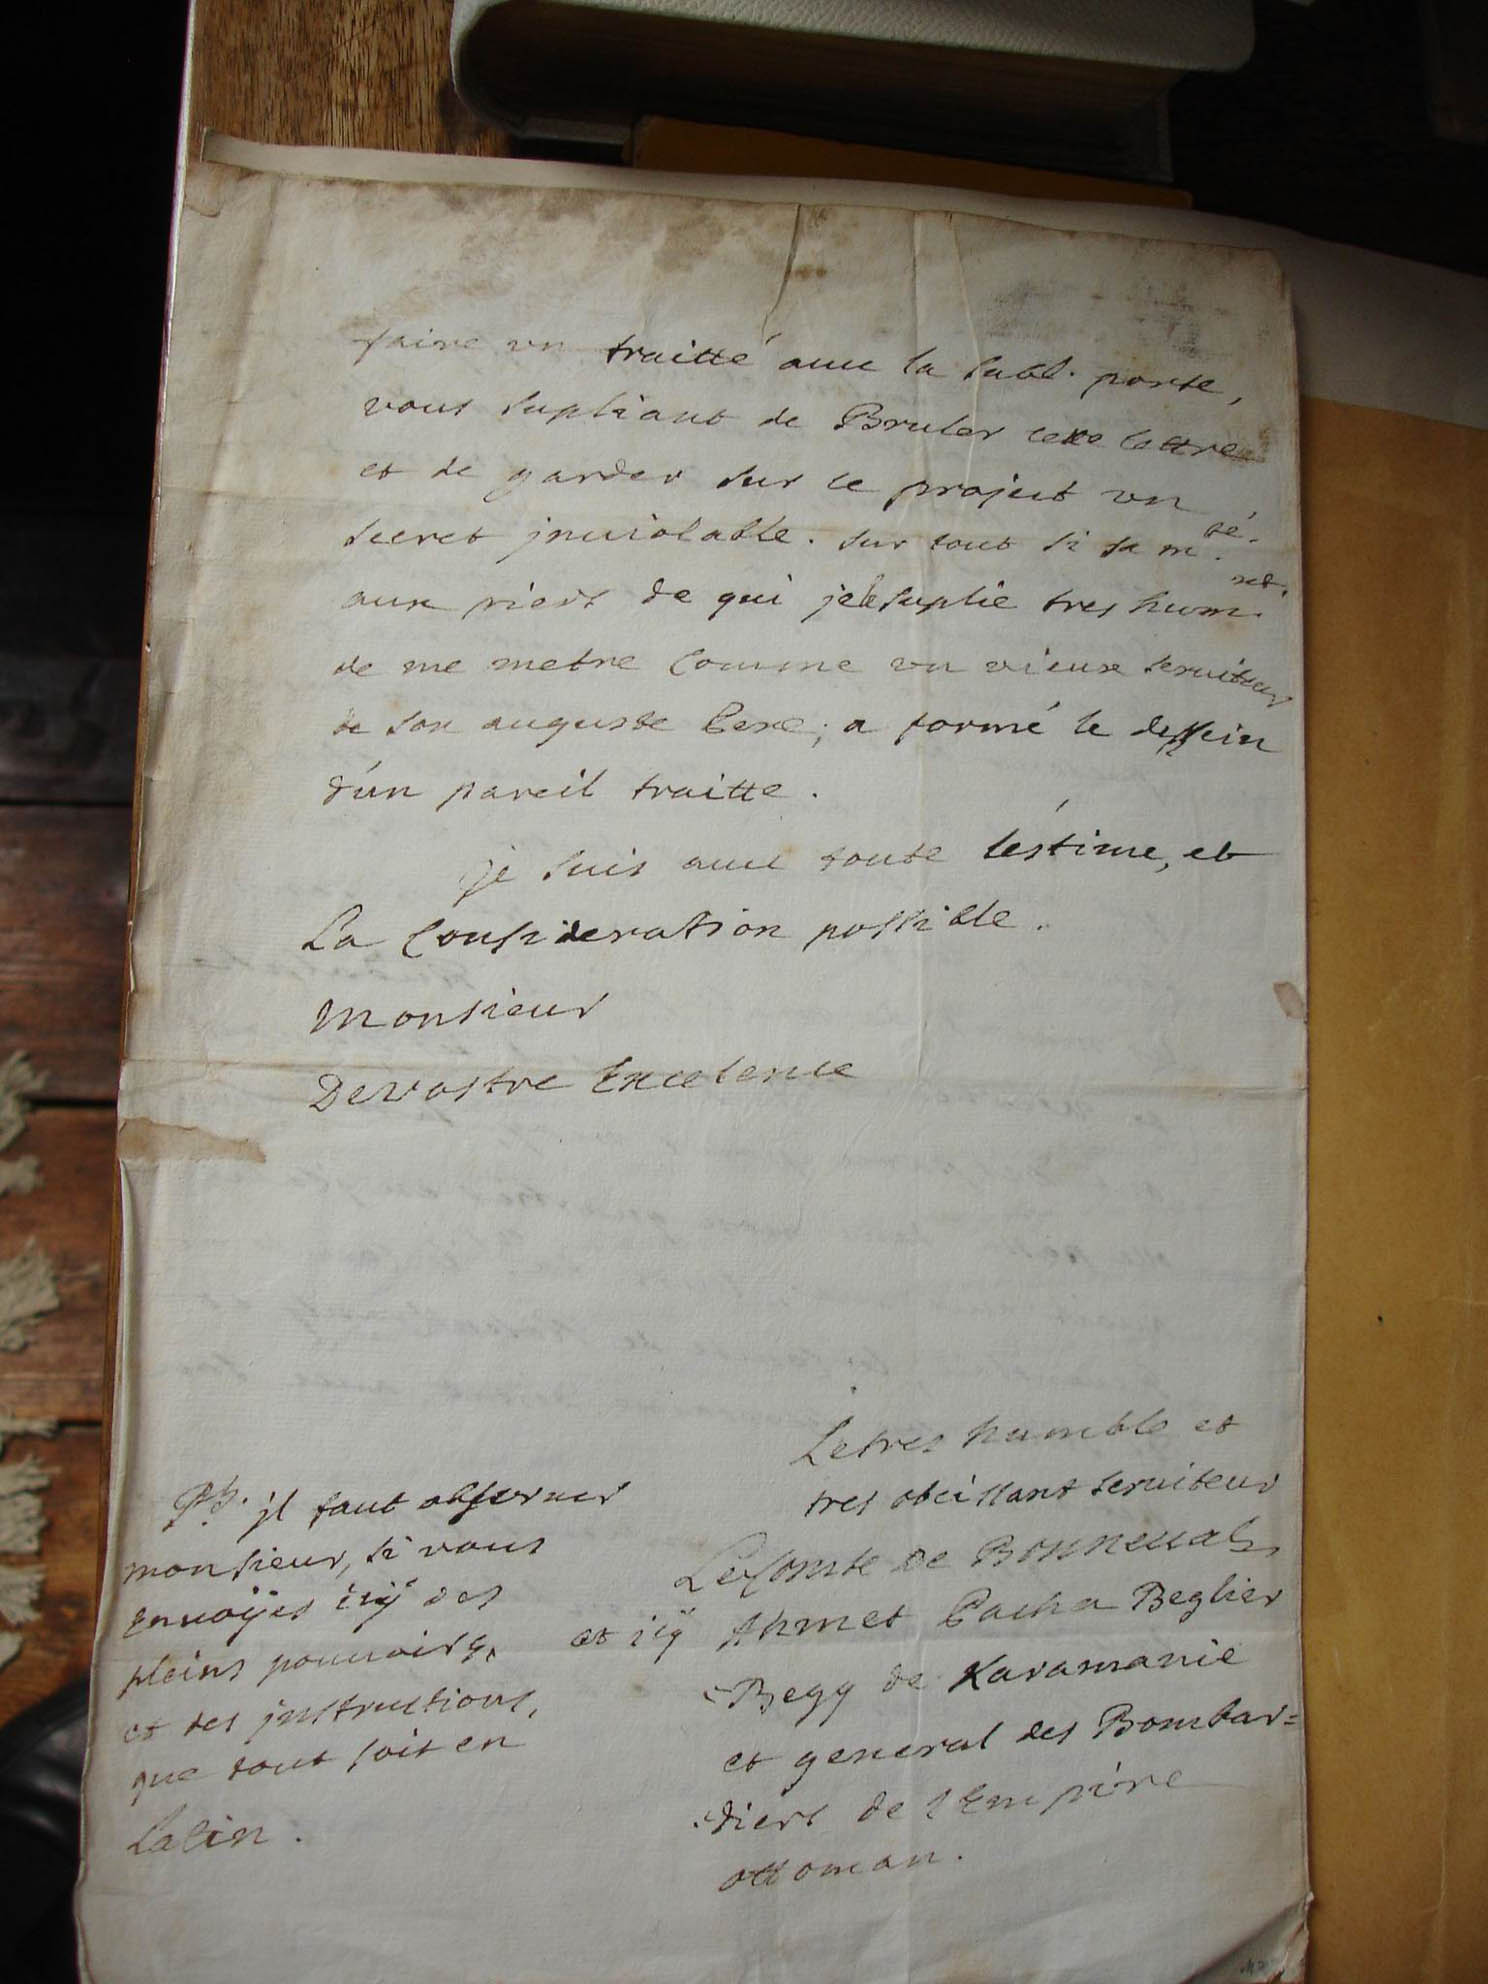 faire vn traitté auec la subl. porte,
vous supliant de Bruler cette lettre
et de garder sur ce project vn
secret jnuiolable. sur tout si sa m.té.
aux pieds de qui je le suplie tres hum.nt.
de me metre comme vn vieux seruiteur
de son auguste Pere; a formé le dessein
d'un pareil traitte.
je suis auec toute l'estime, et
La Consideration possible.
Monsieur
De vostre Excelence
Le tres humble et
tres obeissant seruiteur
Le Comte de Bonneual
et icÿ Ahmet Pacha Beglier
-Begy de Karamanie
et general des Bombar=
-diers de l'Empire
ottoman.
PS. jl faut obseruer
monsieur, si vous
enuoÿes icÿ des
pleins pouuoirs,
et des jnstructions,
que tout soit en
Latin.